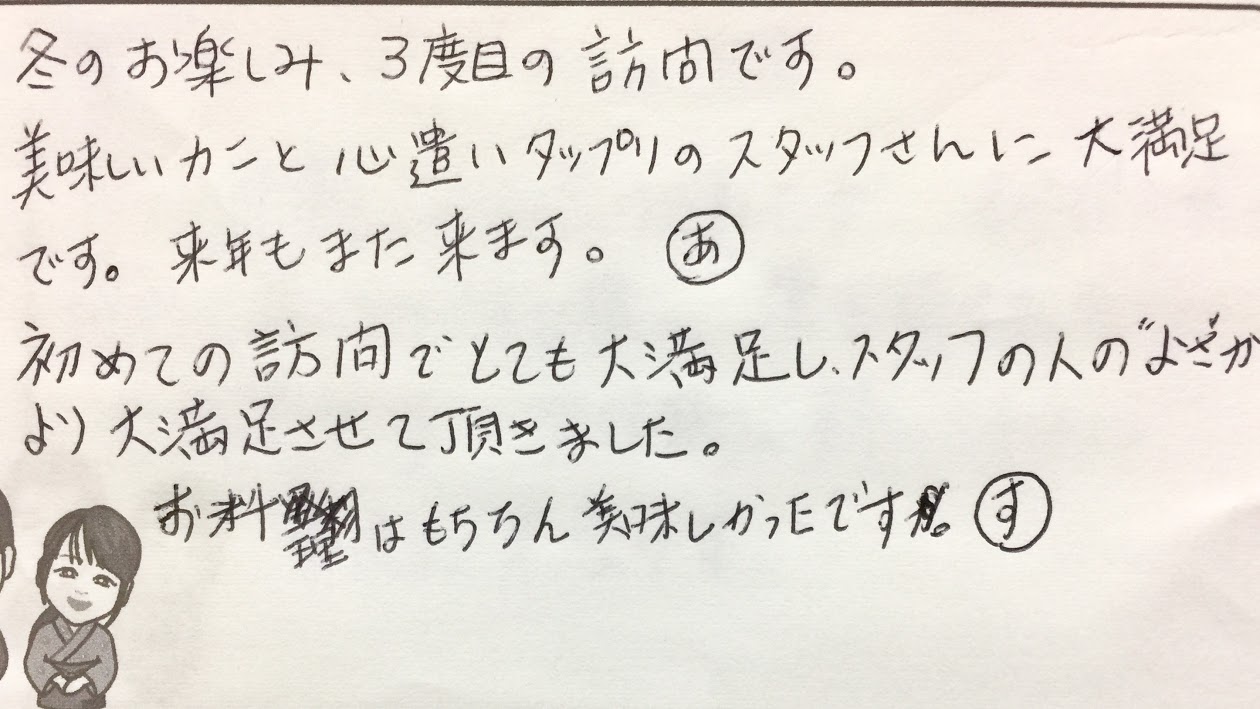 冬のお楽しみ、3度目の訪問です。
美味しいカニと心遣いタップリのスタッフさんに大満足
です。来年もまた来ます。 あ
初めての訪問でとても大満足し、スタッフの人のよさか
より大満足させて頂きました。
お料理はもちろん美味しかったです。 す